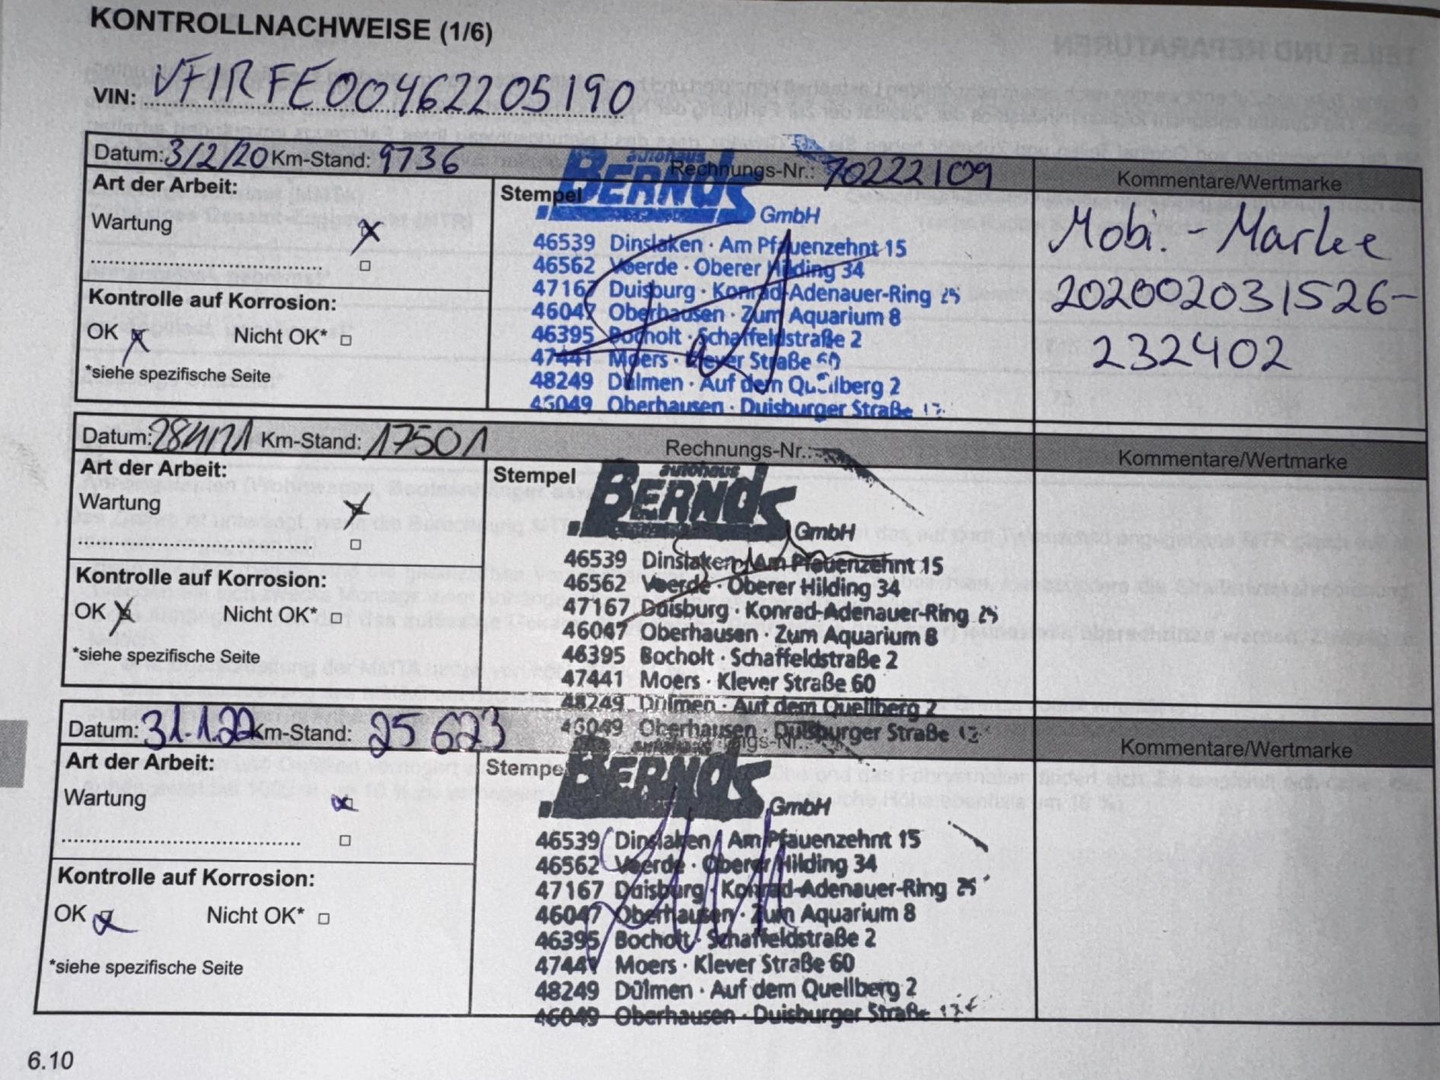 KONTROLLNACHWEISE (1/6)
VIN: VF1RFE00462205190
Datum: 3/2/20 Km-Stand: 9736 Rechnungs-Nr.: 70222109 Kommentare/Wertmarke
Art der Arbeit:
Wartung
Kontrolle auf Korrosion:
OK Nicht OK*
*siehe spezifische Seite
Stempel
autohaus
BERNDS
GmbH
46539 Dinslaken · Am Pfauenzehnt 15
46562 Voerde · Oberer Hilding 34
47167 Duisburg · Konrad-Adenauer-Ring 25
46047 Oberhausen · Zum Aquarium 8
46395 Bocholt · Schaffeldstraße 2
47441 Moers · Klever Straße 60
48249 Dülmen · Auf dem Quellberg 2
46049 Oberhausen · Duisburger Straße
Mobi. - Marke
202002031526-
232402
Datum: Km-Stand: 17501 Rechnungs-Nr.: Kommentare/Wertmarke
Art der Arbeit:
Wartung
Kontrolle auf Korrosion:
OK Nicht OK*
*siehe spezifische Seite
Stempel
autohaus
BERNDS
GmbH
46539 Dinslaken · Am Pfauenzehnt 15
46562 Voerde · Oberer Hilding 34
47167 Duisburg · Konrad-Adenauer-Ring 25
46047 Oberhausen · Zum Aquarium 8
46395 Bocholt · Schaffeldstraße 2
47441 Moers · Klever Straße 60
48249 Dülmen · Auf dem Quellberg 2
46049 Oberhausen · Duisburger Straße
Datum: 31.1.22 Km-Stand: 25623 Kommentare/Wertmarke
Art der Arbeit:
Wartung
Kontrolle auf Korrosion:
OK Nicht OK*
*siehe spezifische Seite
Stempel
BERNDS
GmbH
46539 Dinslaken · Am Pfauenzehnt 15
46562 Voerde · Oberer Hilding 34
47167 Duisburg · Konrad-Adenauer-Ring 25
46047 Oberhausen · Zum Aquarium 8
46395 Bocholt · Schaffeldstraße 2
47441 Moers · Klever Straße 60
48249 Dülmen · Auf dem Quellberg 2
46049 Oberhausen · Duisburger Straße
6.10